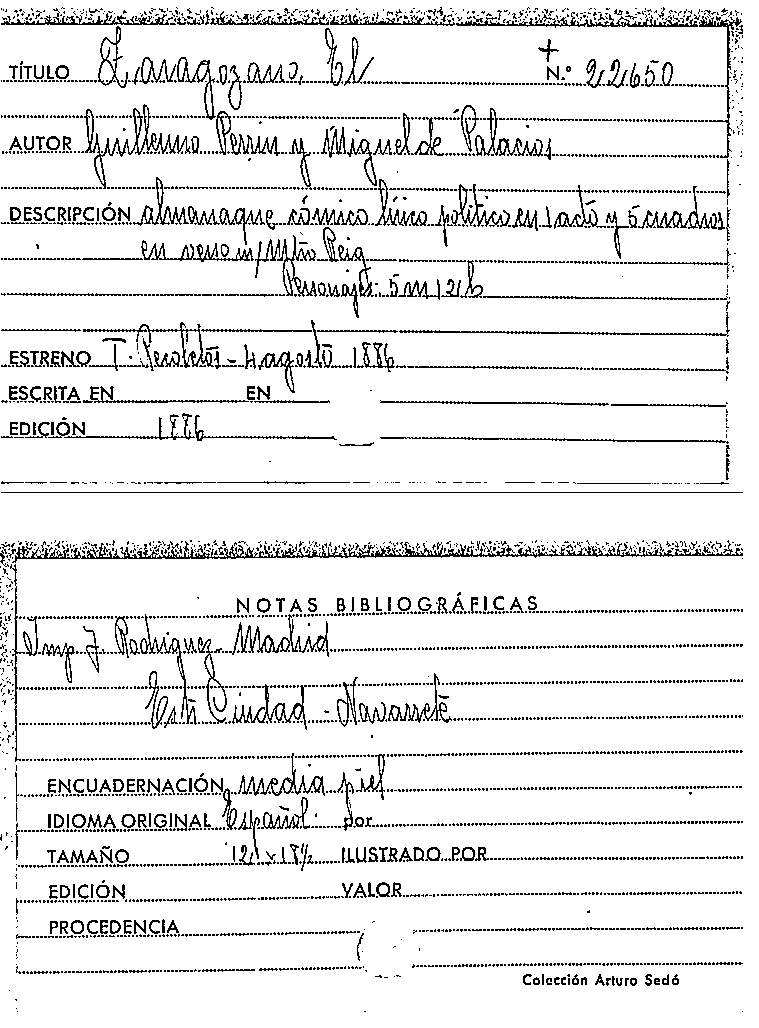 TÍTULO Zaragozano, El + N.º 22650
AUTOR Guillermo Perrin y Miguel de Palacios
DESCRIPCIÓN almanaque cómico lírico político en 1 acto y 5 cuadros
en verso m/ Mtro Reig
Personajes: 5 m 21 h
ESTRENO T. Recoletos - 4 agosto 1886
ESCRITA EN EN
EDICIÓN 1886
NOTAS BIBLIOGRÁFICAS
Imp J. Rodriguez Madrid
Ciudad - Navarrete
ENCUADERNACIÓN media piel
IDIOMA ORIGINAL Español. por
TAMAÑO ILUSTRADO POR
EDICIÓN VALOR
PROCEDENCIA
Colección Arturo Sedó